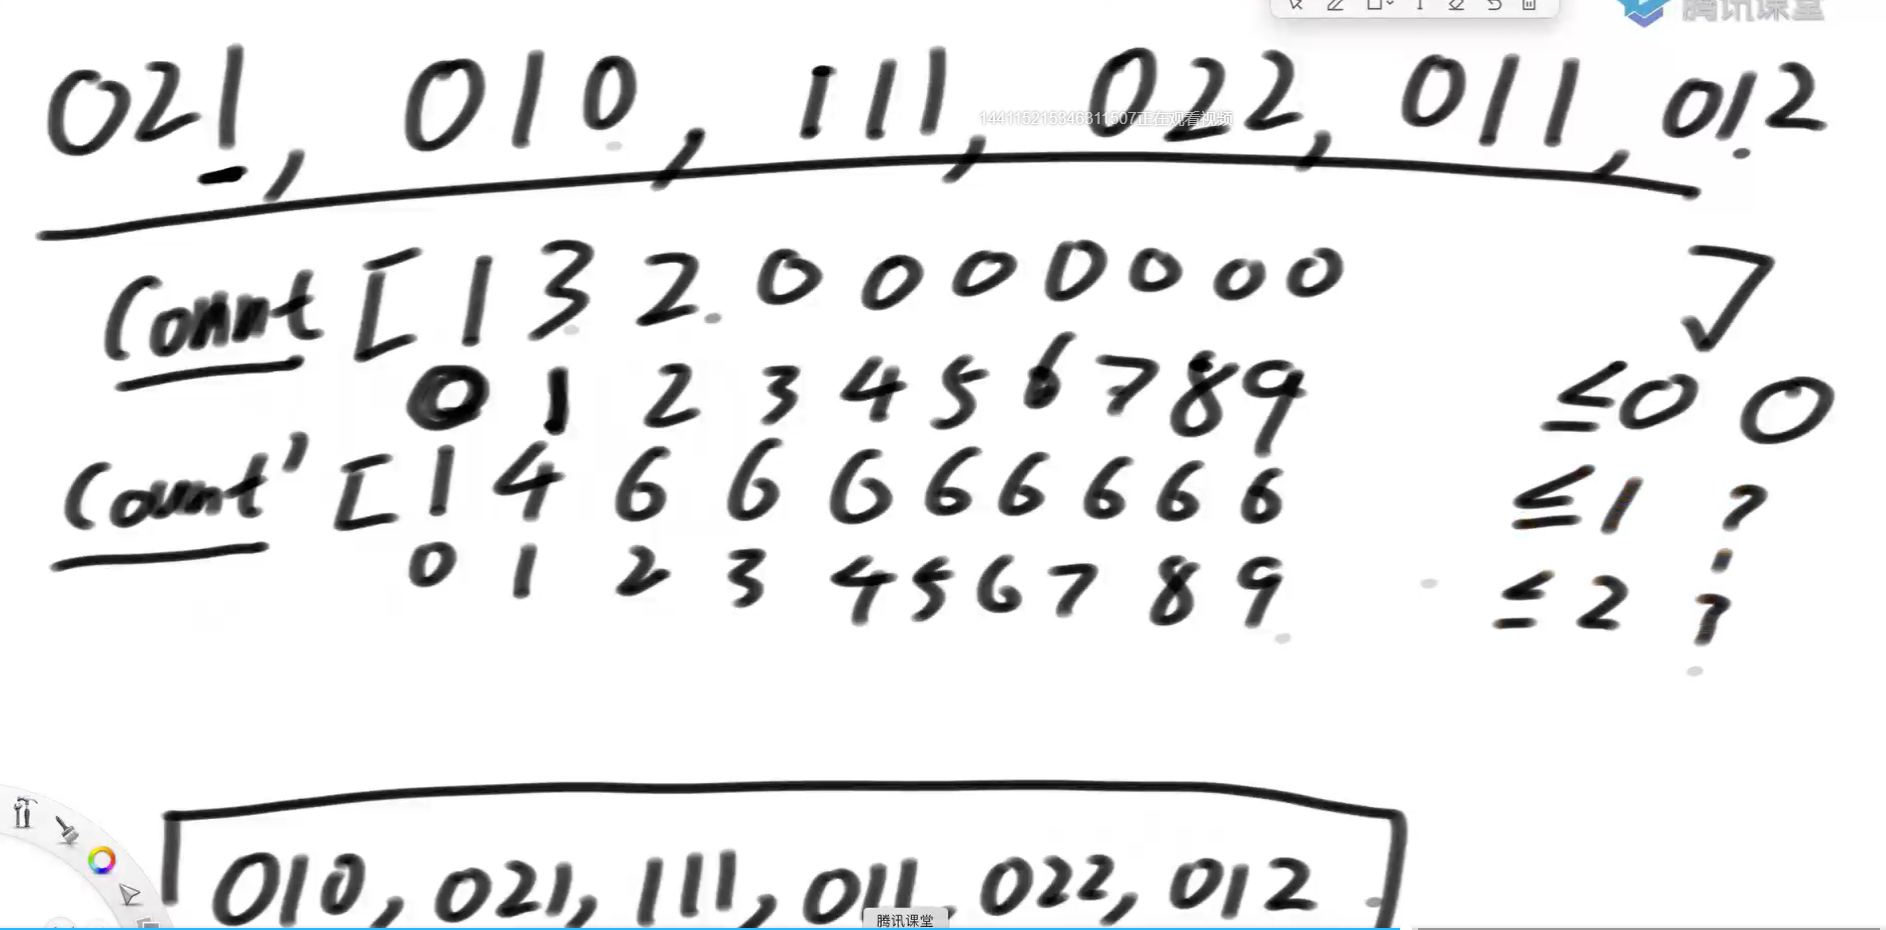 腾讯课堂
021, 010, 111, 022, 011, 012
144115215346311507正在观看视频
Count [ 1 3 2 0 0 0 0 0 0 0
0 1 2 3 4 5 6 7 8 9
≤0 0
Count' [ 1 4 6 6 6 6 6 6 6 6
≤1 ?
0 1 2 3 4 5 6 7 8 9
≤2 ?
010, 021, 111, 011, 022, 012
腾讯课堂